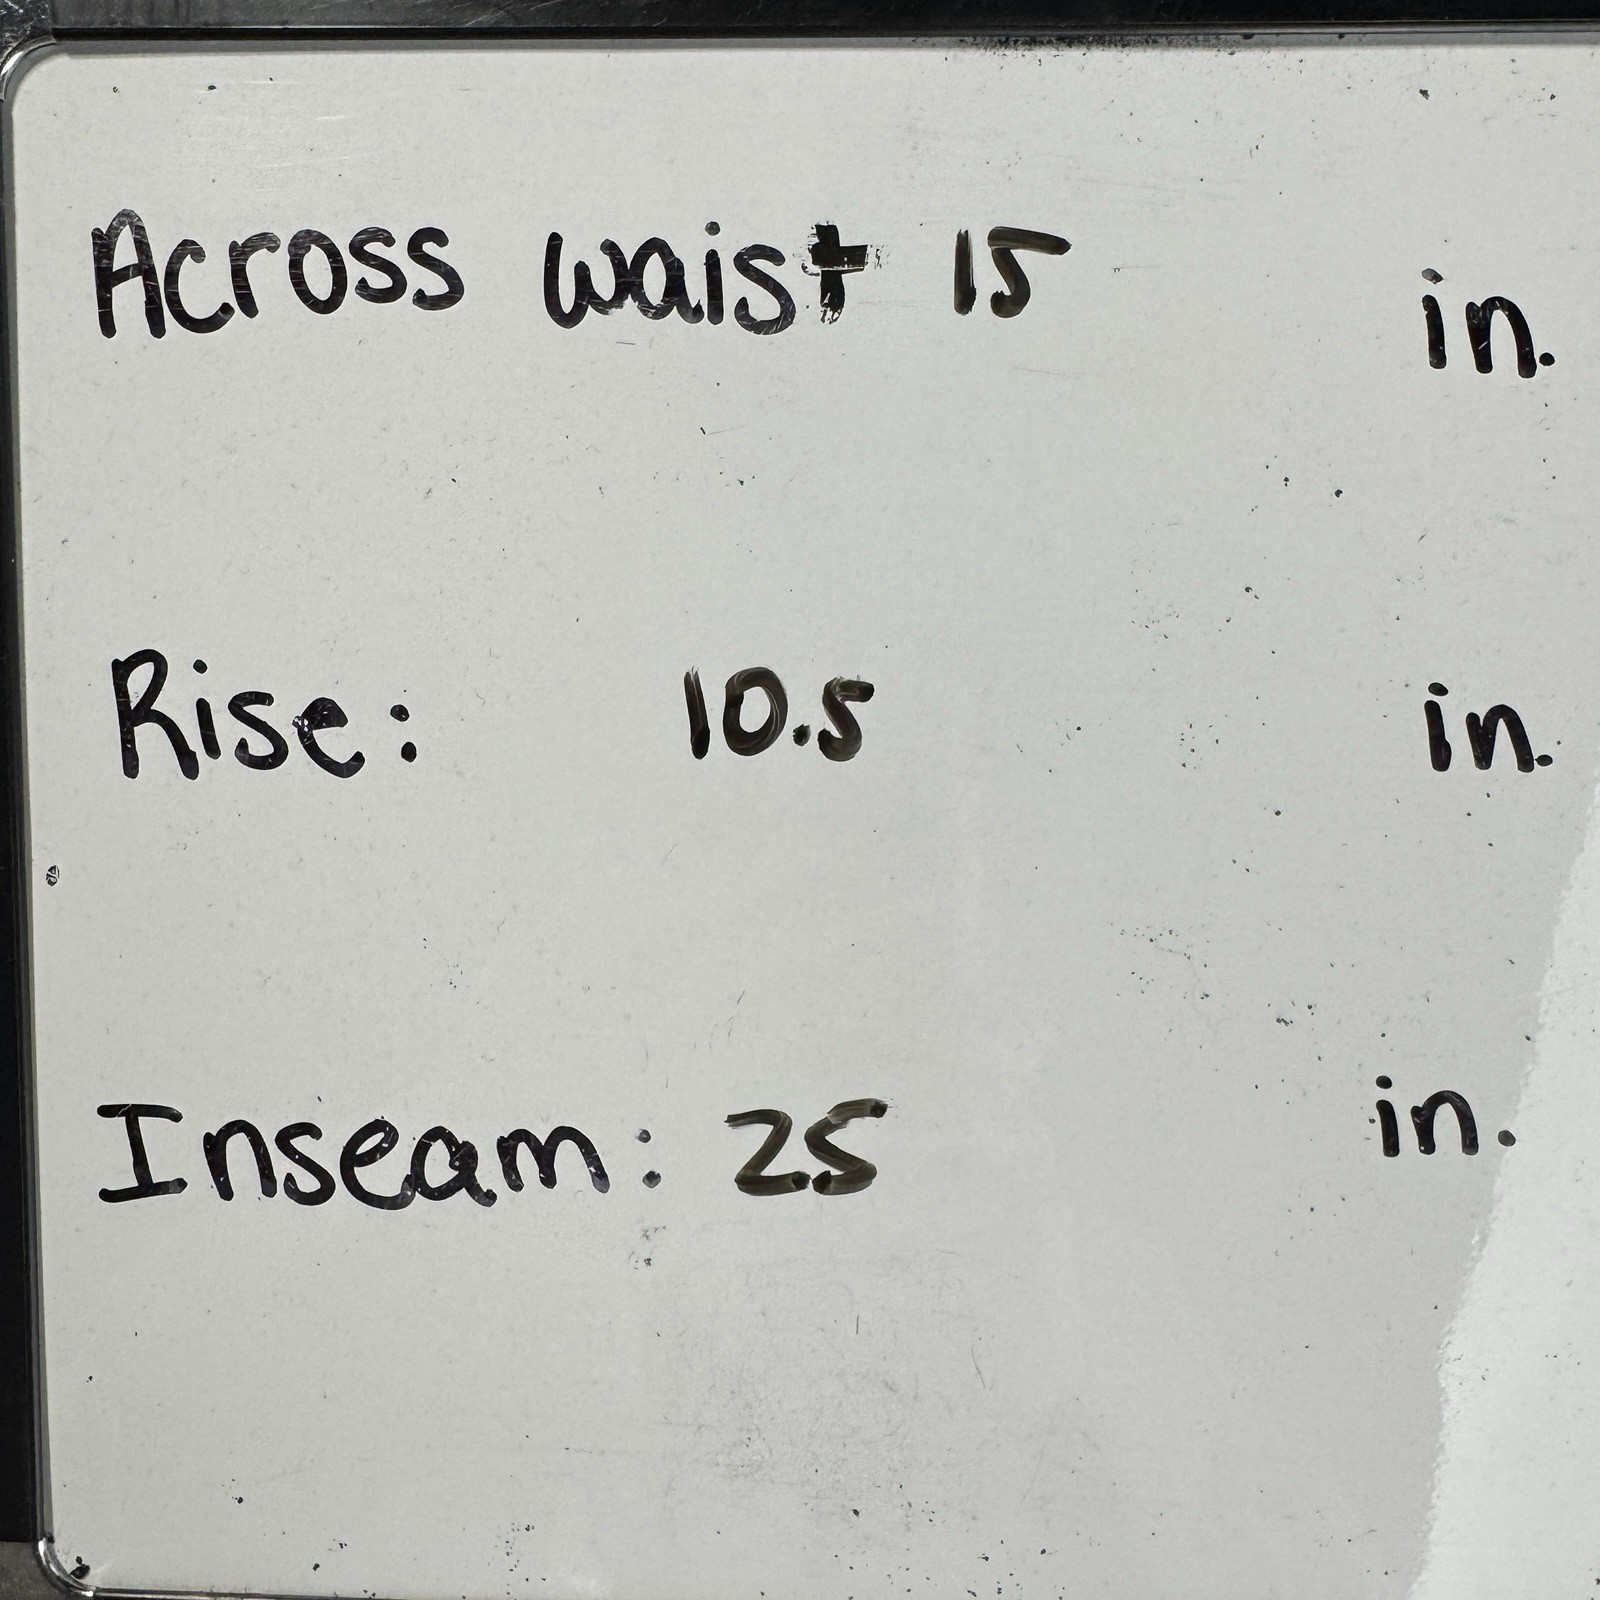 Across waist 15 in.
Rise: 10.5 in.
Inseam: 25 in.